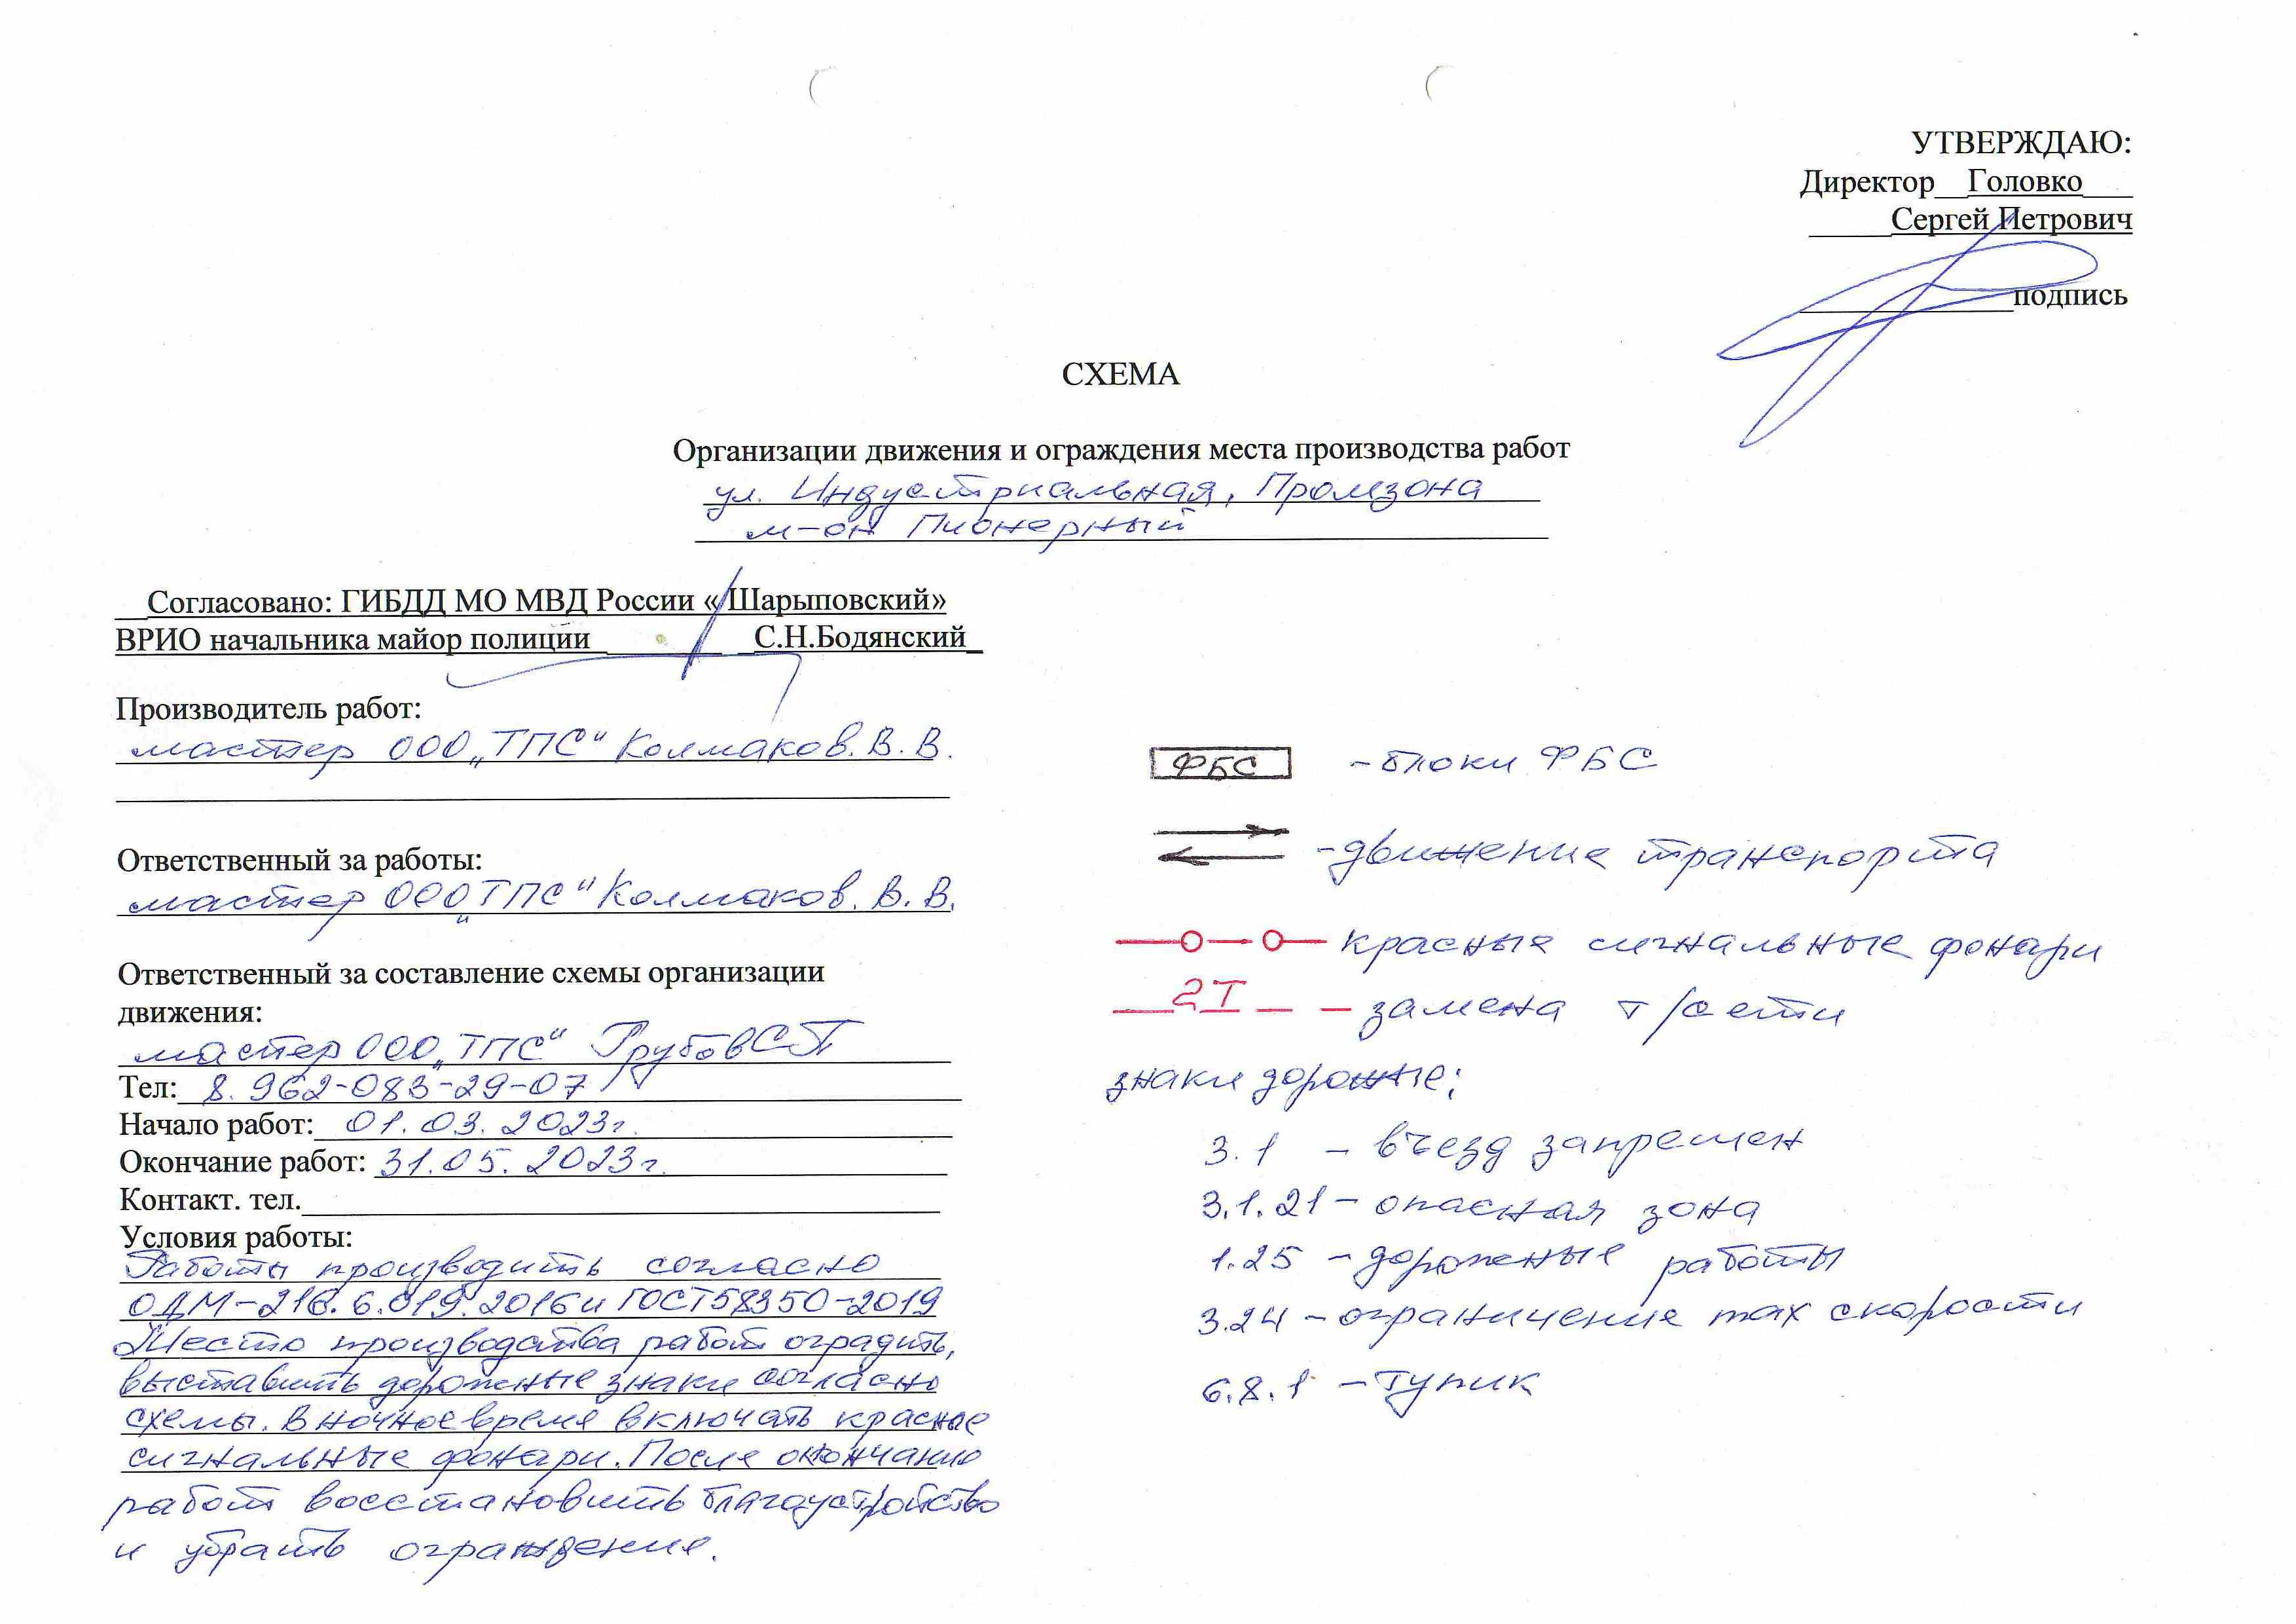 УТВЕРЖДАЮ:
Директор__Головко___
_____Сергей Петрович
_____________подпись
СХЕМА
Организации движения и ограждения места производства работ
ул. Индустриальная, Промзона
м-он Пионерный
__Согласовано: ГИБДД МО МВД России « Шарыповский»
ВРИО начальника майор полиции ________ _С.Н.Бодянский_
Производитель работ:
мастер ООО „ТПС“ Колмаков. В. В.
Ответственный за работы:
мастер ООО „ТПС“ Колмаков. В. В.
Ответственный за составление схемы организации
движения:
мастер ООО „ТПС“ Грубов СП
Тел: 8. 962-083-29-07
Начало работ: 01. 03. 2023г.
Окончание работ: 31. 05. 2023г.
Контакт. тел.
Условия работы:
Работы производить согласно
ОДМ-218. 6. 019. 2016 и ГОСТ 58350-2019
Место производства работ оградить,
выставить дорожные знаки согласно
схемы. В ночное время включать красные
сигнальные фонари. После окончанию
работ восстановить благоустройство
и убрать ограждение.
ФБС - блоки ФБС
- движение транспорта
красные сигнальные фонари
2Т - замена т/сети
знаки дорожные:
3.1 - въезд запрещен
3.1.21 - опасная зона
1.25 - дорожные работы
3.24 - ограничение max скорости
6.8.1 - тупик